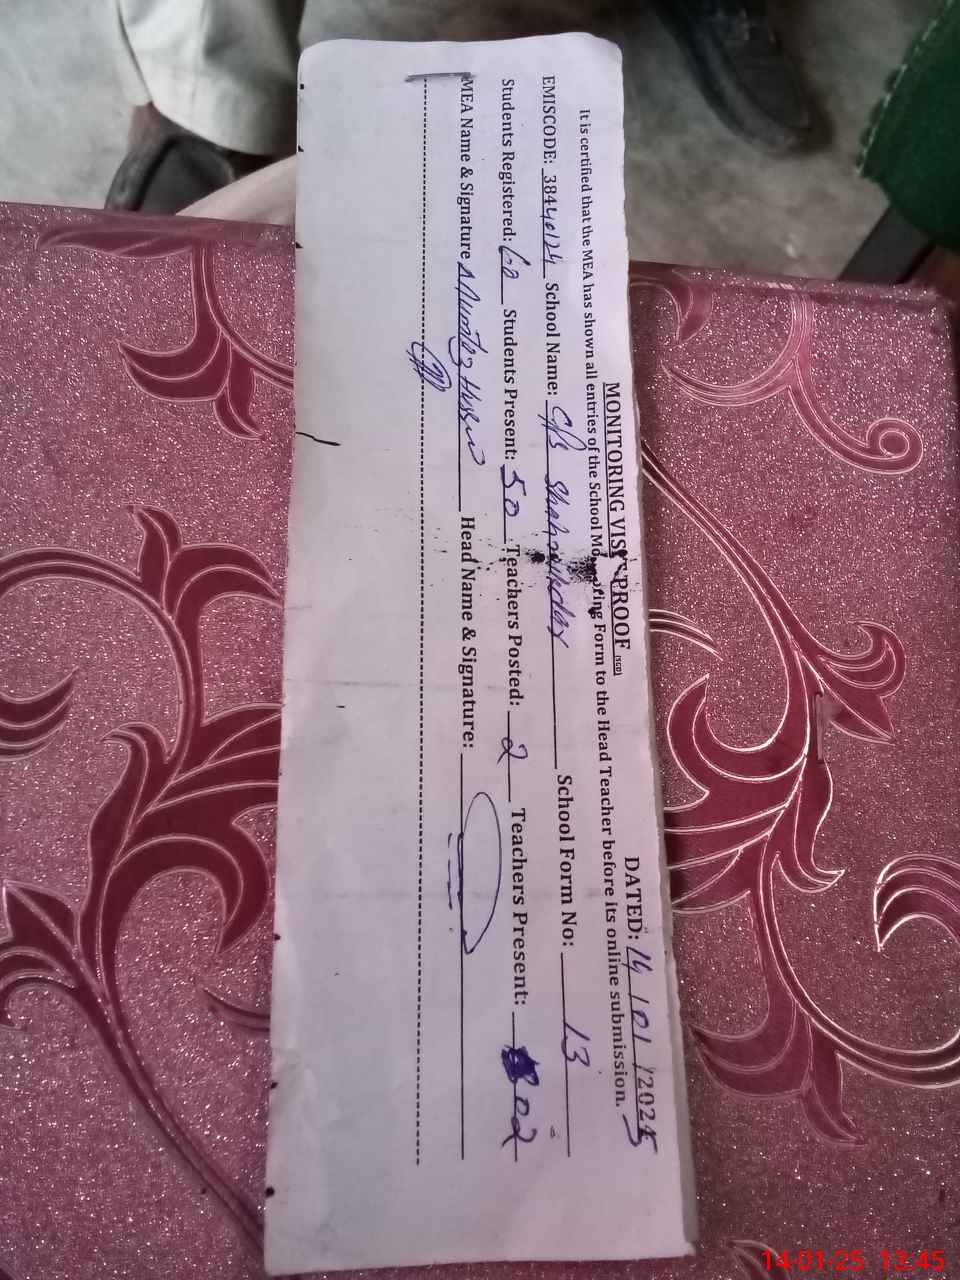 MONITORING VISIT PROOF (SGD) DATED: 14/01/2025
It is certified that the MEA has shown all entries of the School Monitoring Form to the Head Teacher before its online submission.
EMISCODE: 38440124 School Name: School Form No: 13
Students Registered: 60 Students Present: 50 Teachers Posted: 2 Teachers Present: 02
MEA Name & Signature Head Name & Signature:
14-01-25 13:45